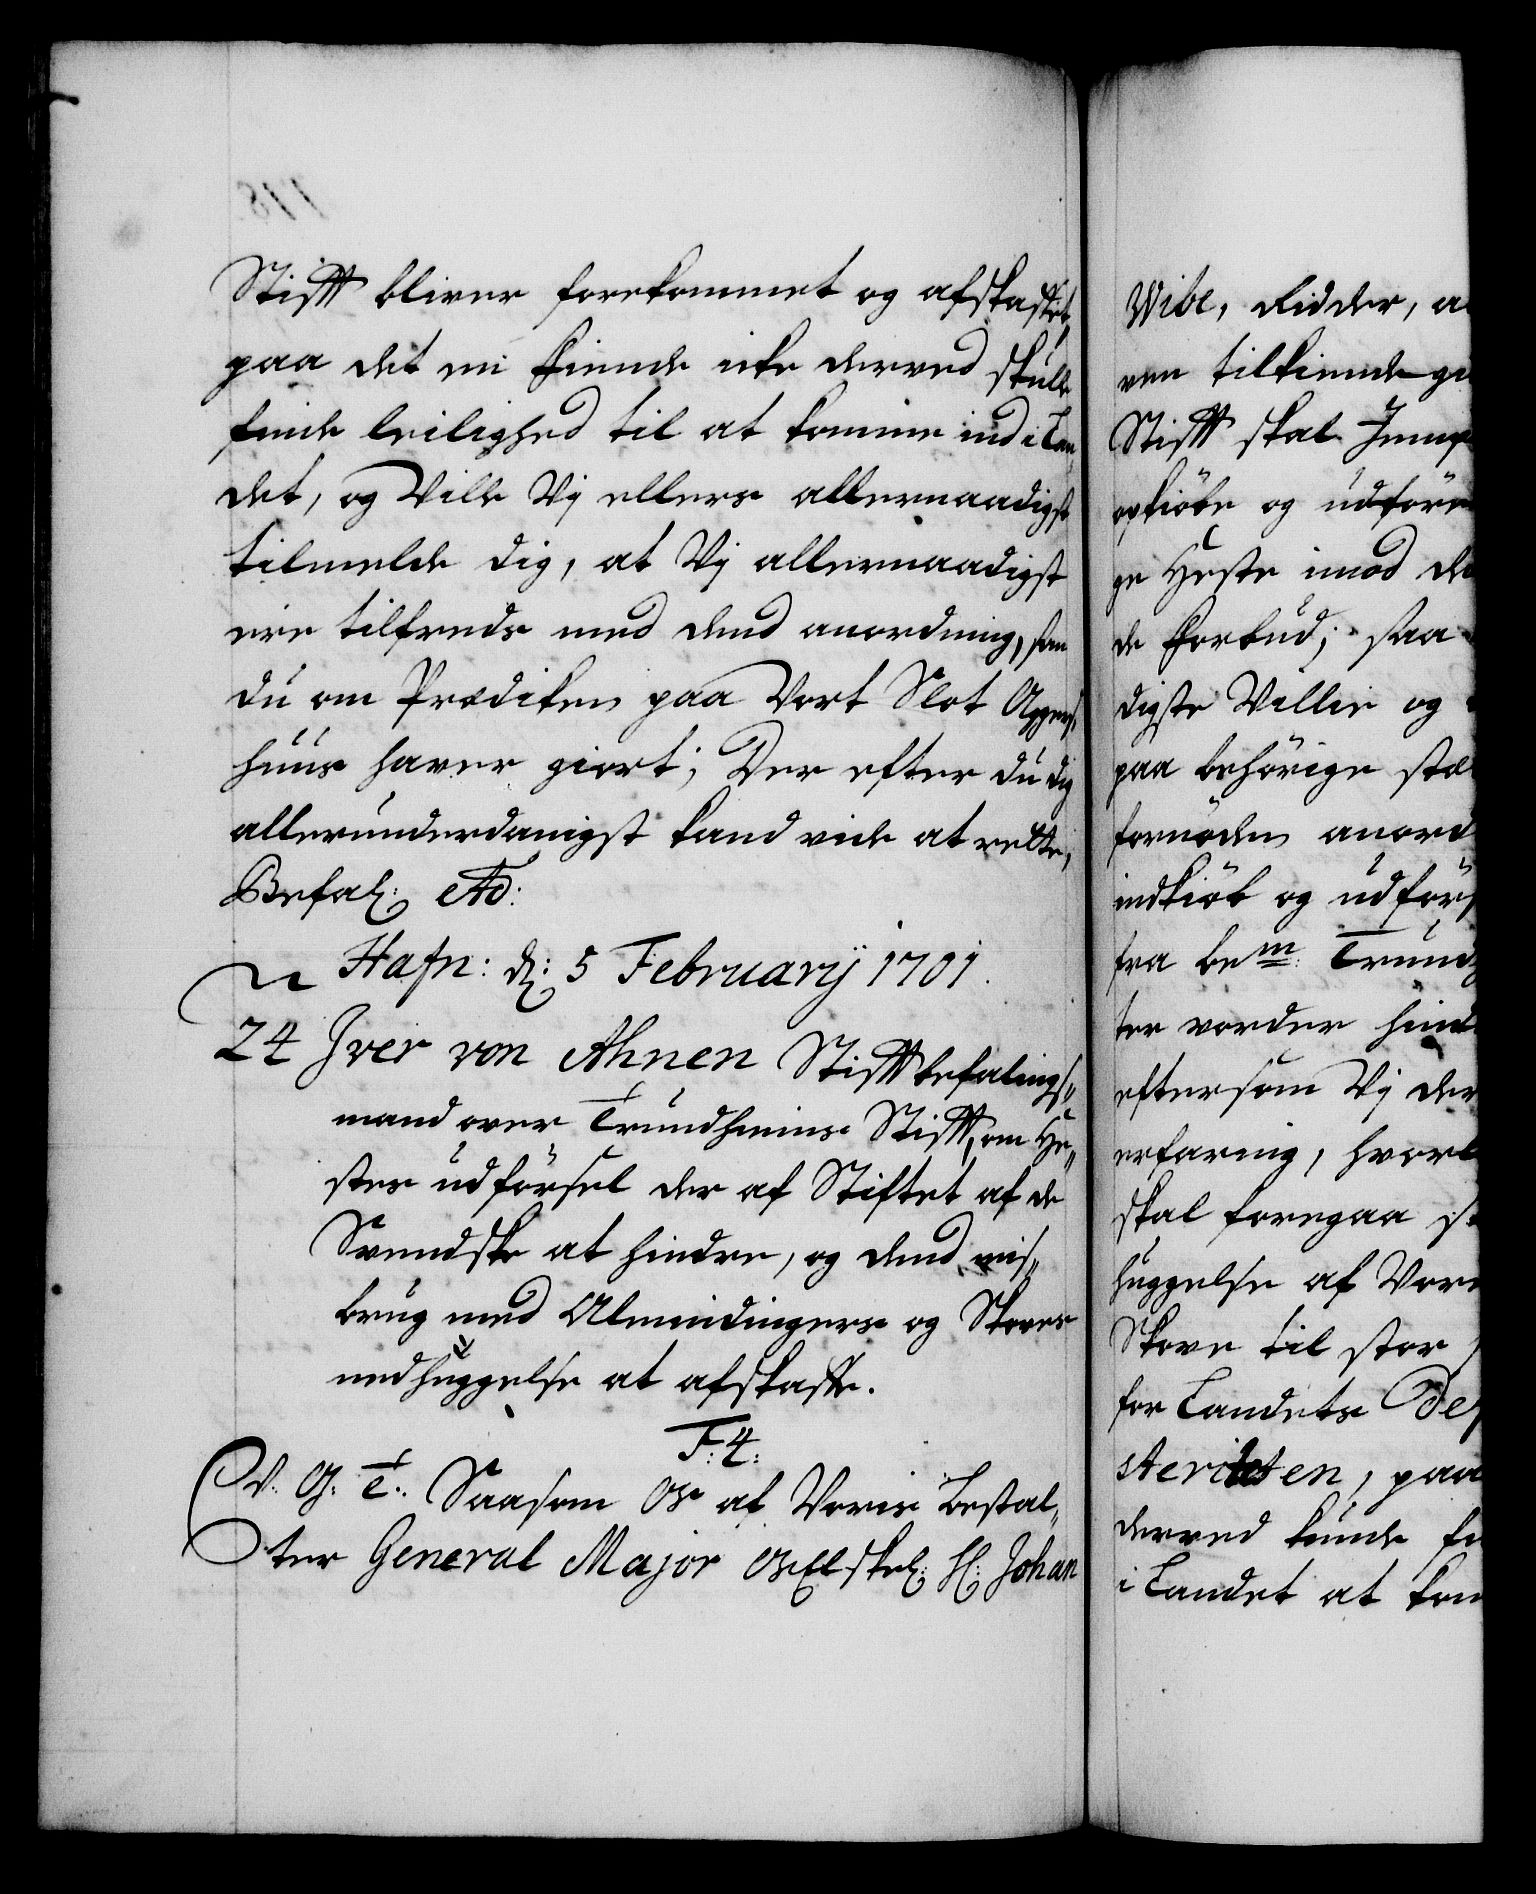 Stifft bliver forekommet og afskaffet,
paa det en fiende icke derved skulle
finde leilighed til at komme ind i Lan,,
det, og Ville Vj ellers allernaadigst
tilmelde dig, at Vj allernaadigst
ere tilfreds med dend anordning, som
du om Prædiken paa Vort Slot Agger,,
huus haver giort; Der efter du dig
allerunderdanigst kand vide at rette,
Befal: etc:
Hafn: d: 5 Februarij 1701.
24 Iver von Ahnen Stifftbefalings,,
mand over Trundhiems Stifft, om He,,
stes udførsel der af Stiftet af de
Svendske at hindre, og dend mis,,
brug med Almindingers og Skoves
nedhuggelse at afskaffe.
F: 4:
V. G. T. Saasom Os af Voris Bestal,,
ter General Major Os Elskel: H: Johan
Wibe, Ridder, a
ven tilkiende gi
Stifft skal
opkiøbe og udføre
ge Heste imod de
de forbud; saa
digste Villie og
paa behørige stæ
fornøden anord
indkiøb og udførs
fra bem: Trund
ter vorder hind
eftersom Vj der
erfaring, hvorl
skal foregaa
huggelse af Vore
Skove til stor
for Landets Def
steriteten, paa
derved kunde fi
i Landet at kom